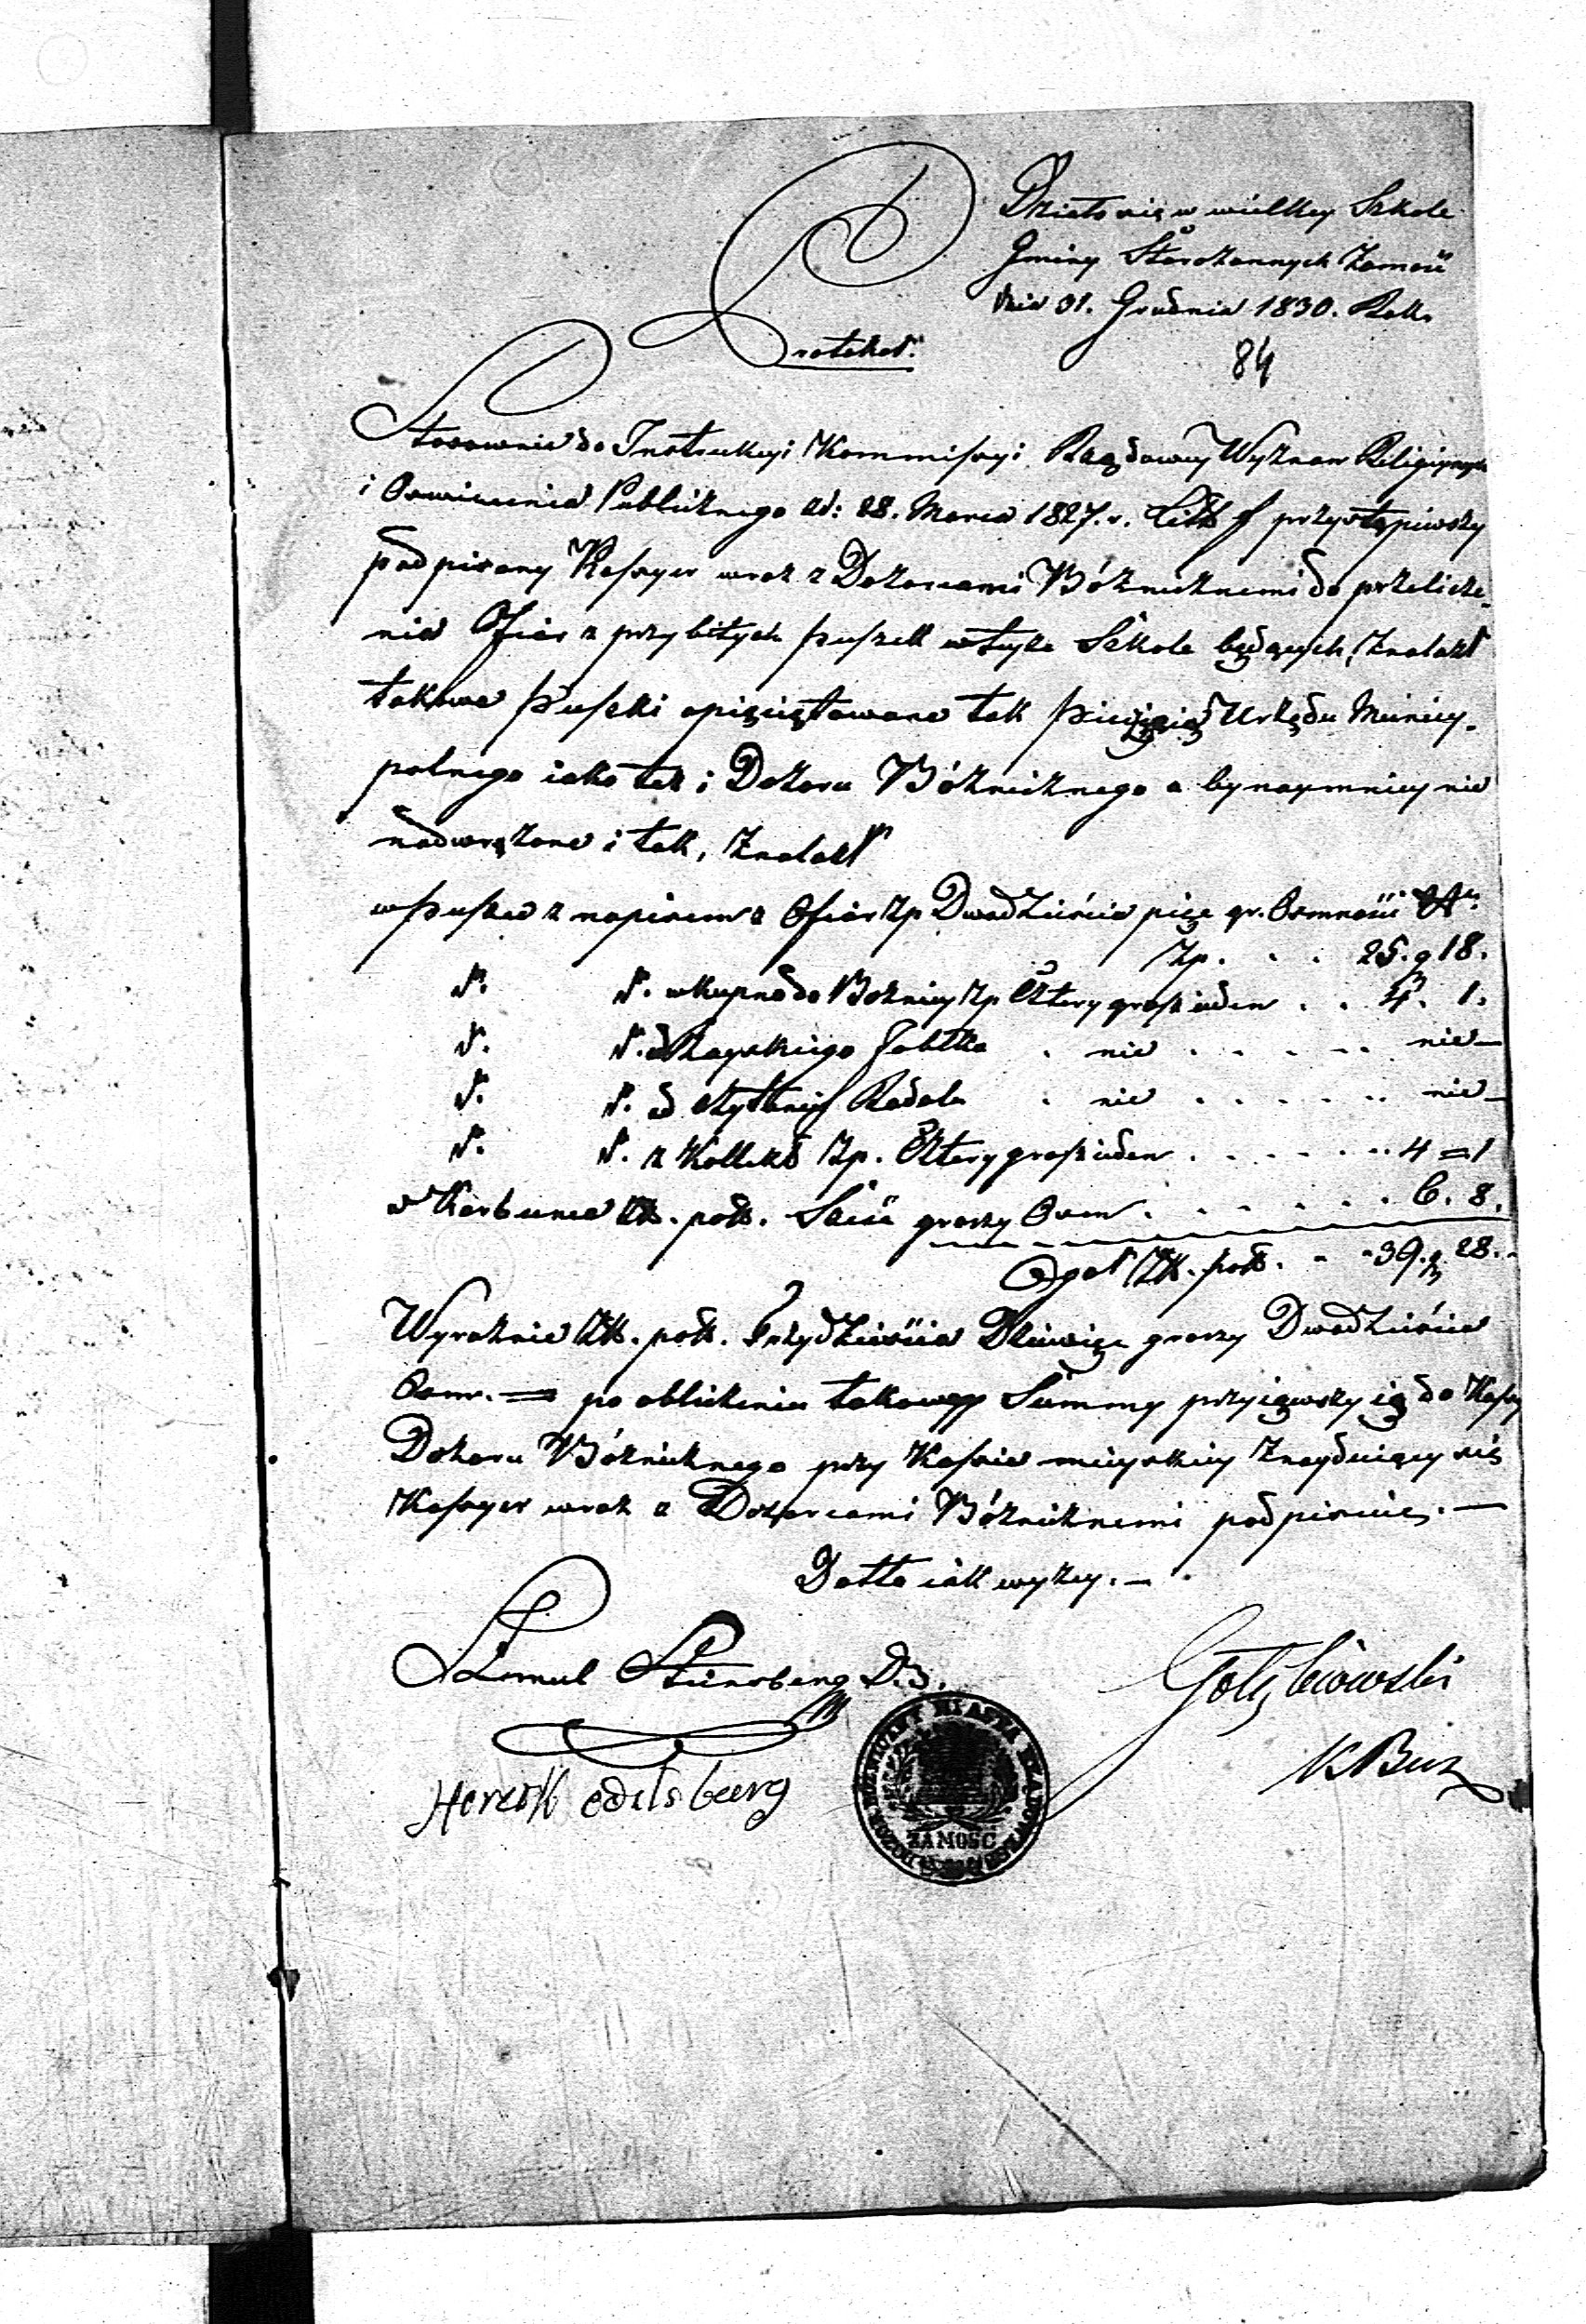 Działo się w wielkiey Szkole
Gminy Starozonnych Zamość
dnia 31. Grudnia 1830. Roku
84
Protokuł.
Stosownie do Instrukcyi Kommissyi Rządowey Wyznań Religiynych
i Oswiecenia Publicznego dd: 28. Marca 1827. r. przystąpiwszy
podpisany Kassyer wraz z Dozorcami Bóżnicznemi do przelicze-
nia Ofiar z przybitych puszek w teyże Szkole będących, Znalazł
takowe puszki opieczętowane tak pieczęcią Urzędu Municy-
palnego iako też i Dozoru Bóżnicznego a bynaymniey nie
nadwrężone i tak, Znalazł
w puszce z napisem z Ofiar Zp Dwadzieścia pięć gr. Osmnaście
Zp. . . 25. g 18.
d. d. wkupna do Bożnicy Zp Cztery grosz ieden . . 4. 1.
d. d. od Rayskiego Jabłka . nic . . . . . nic—
d. d. od Czytania Rodału . nic . . . . . nic—
d. d. z Kollekt Zp. Cztery grosz ieden . . . . . . 4 = 1
w Karbunie Zł. pols. Sześć groszy Osm . . . . . . 6. 8.
Ogół Zł. pols. . . 39. g 28.
Wyraźnie Zł. pols. Trzydzieścia Dziewięć groszy Dwadzieścia
Osm. = po obliczeniu takowey Summy przyiąwszy ią do Kassy
Dozoru Bóżnicznego przy Kassie mieyskiey Znayduiącey się
Kassyer wraz z Dozorcami Bóżnicznemi podpisuie. —
Datto iak wyżey. —
Szmul Sternberg D. B.
Gołębiowski
Herszk edelsberg
K Buz
DOZOR BOZNICZNY MIASTA RZĄDOWEGO
ZAMOSC